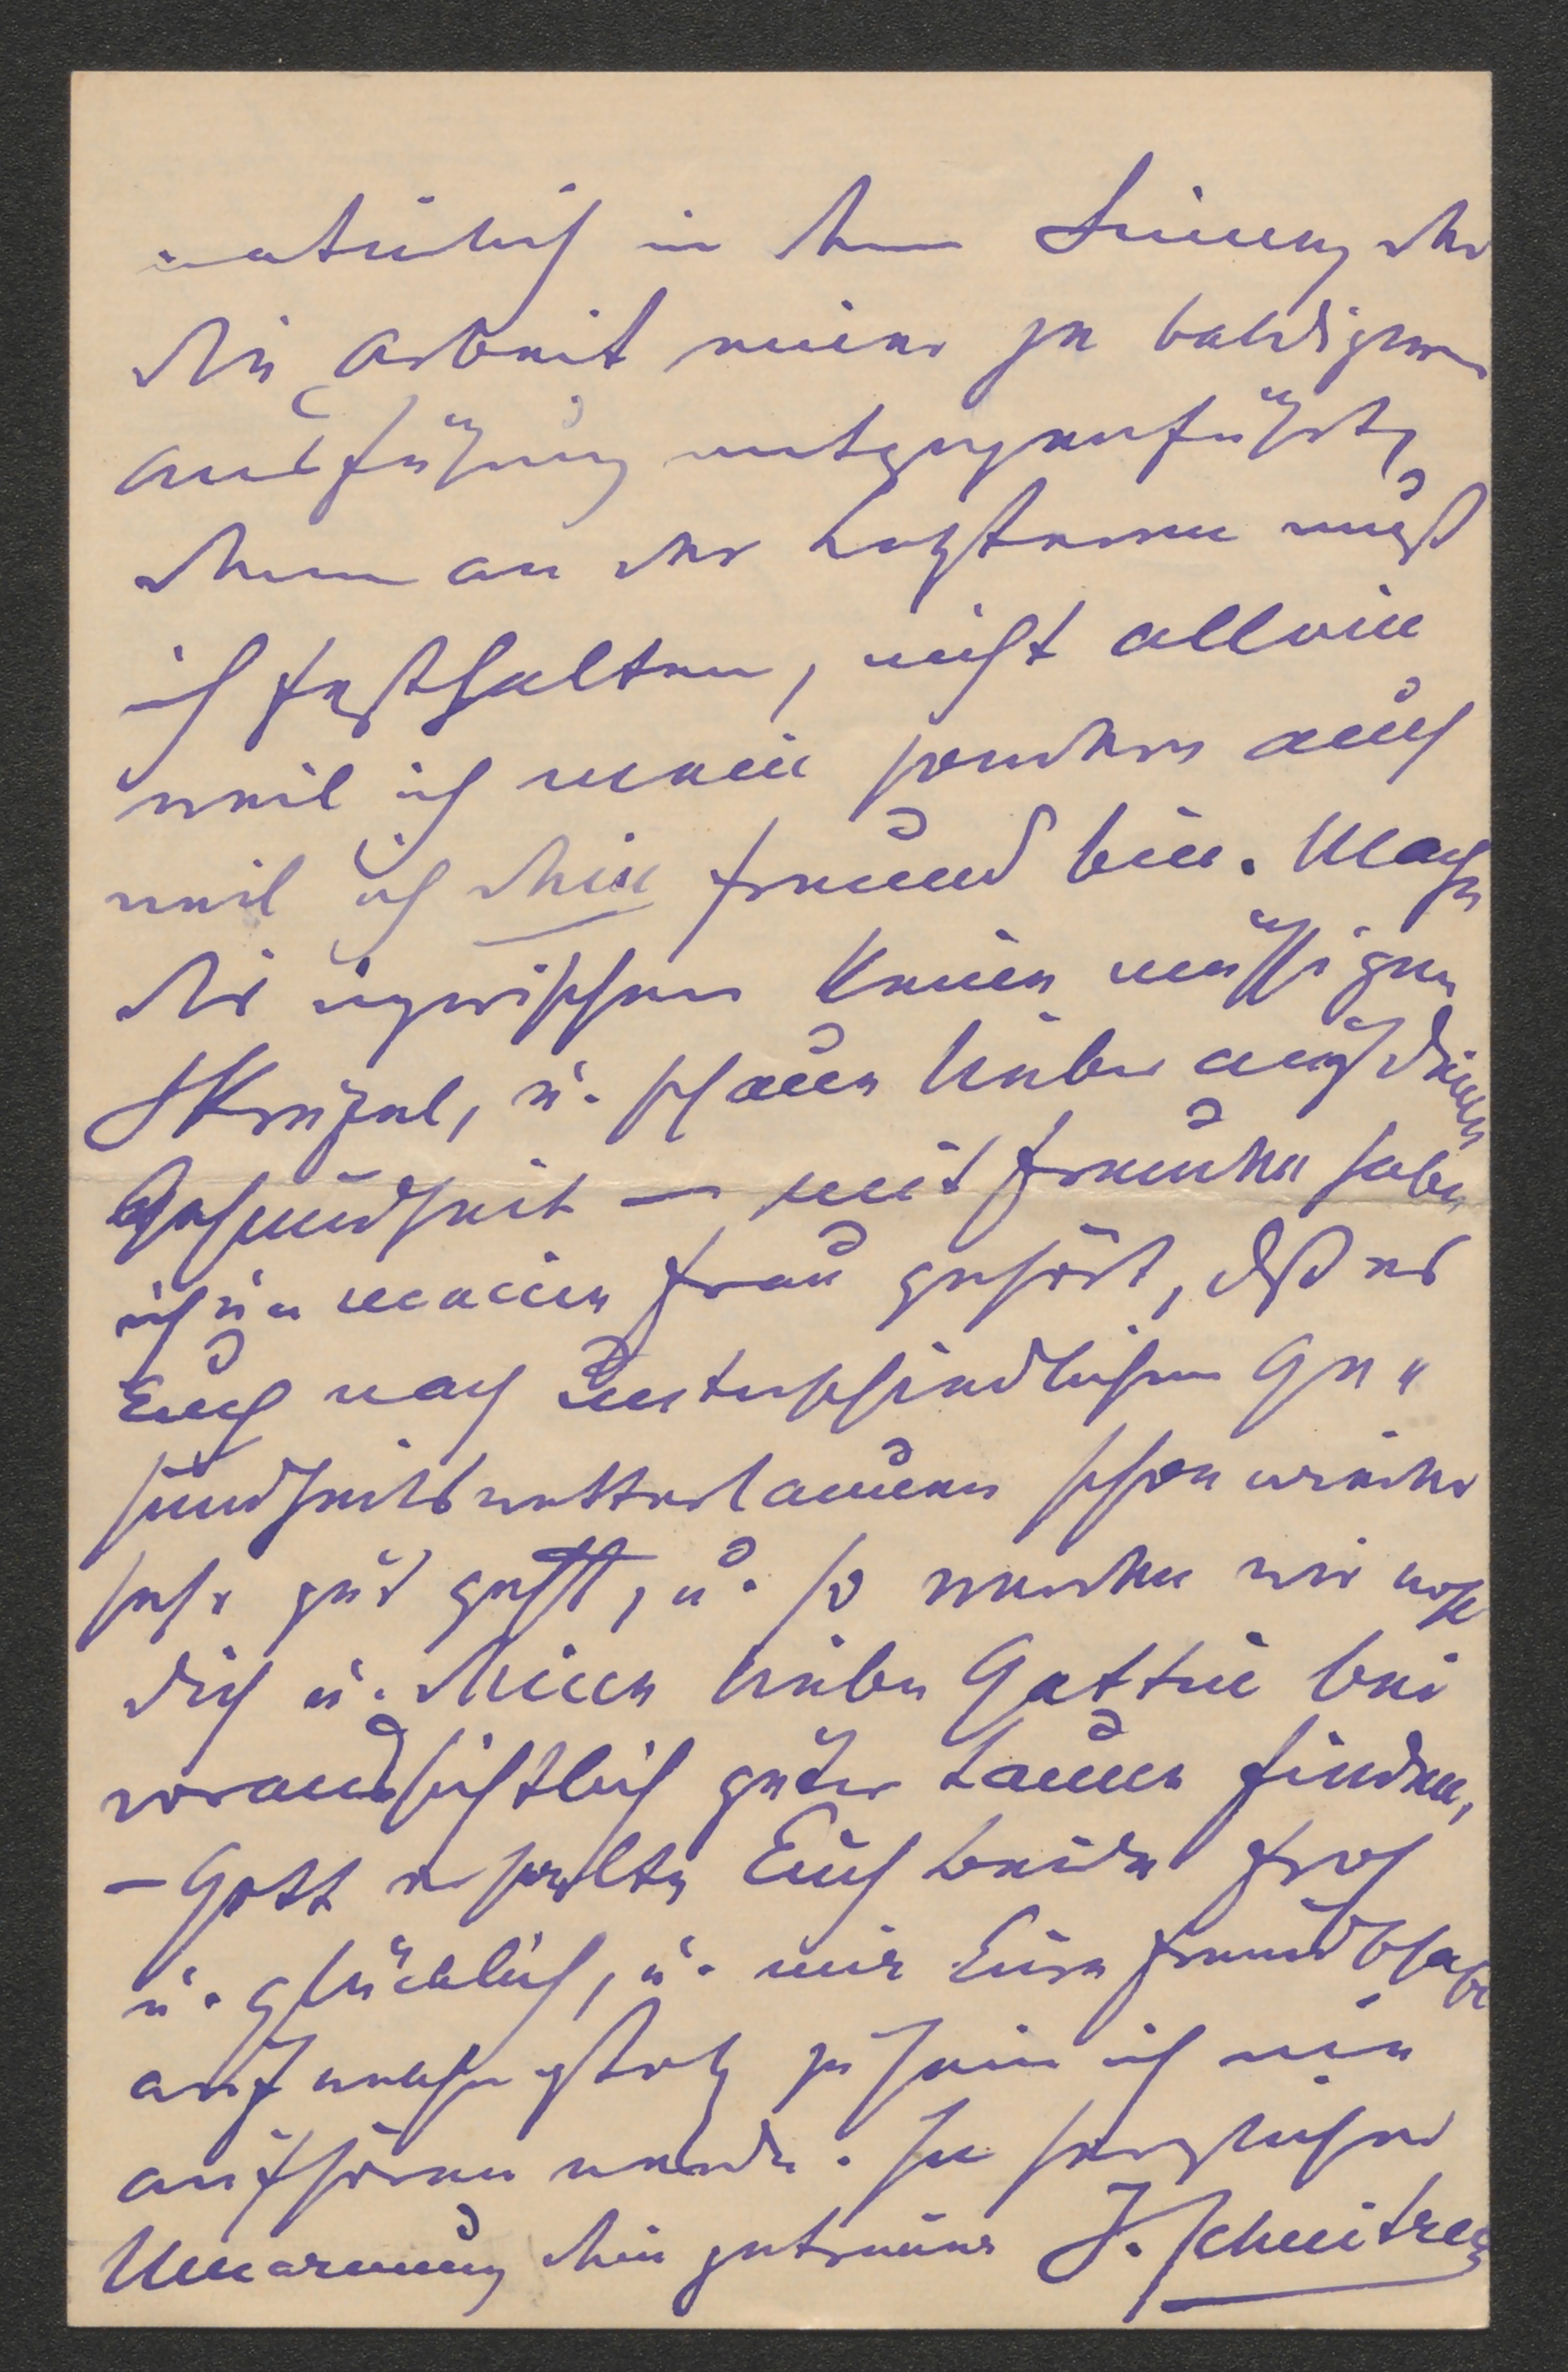 natürlich in dem Sinne, der
die Arbeit einer zu baldigen
Ausführung entgegenführt,
denn an der Letzteren muß
ich festhalten, nicht allein
weil ich mein sondern auch
weil ich Dein Freund bin. Mache
Dir inzwischen keine müssigen
Skrupel, u. schaue lieber auf Deine
Gesundheit — mit Freuden habe
ich u. meine Frau gehört, daß es
Euch nach unterschiedlichen Ge-
sundheitswetterlaunen schon wieder
sehr gut geht, u. so werden wir
Dich u. Deine liebe Gattin bei
voraussichtlich guter Laune finden,
— Gott erhalte Euch beide froh
u. glücklich, u. mir Eure Freundschaft
auf welche stolz zu sein ich nie
aufhören werde. In herzlicher
Umarmung Dein getreuer J. Schnitzer